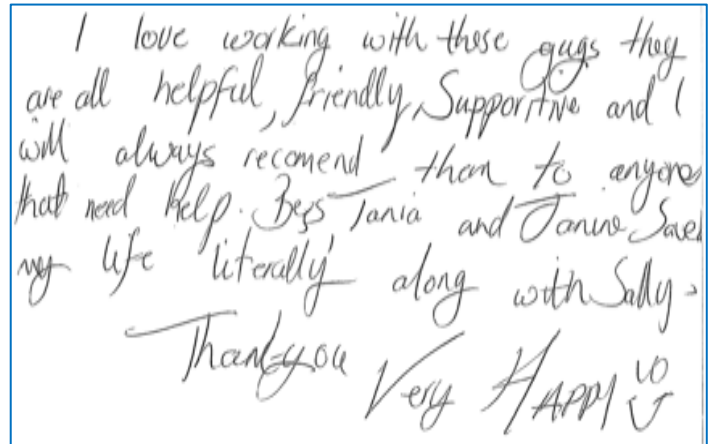 I love working with these guys they
are all helpful, friendly, Supportive and I
will always recomend them to anyone
that need help. Tania and Janine Saved
my life 'literally' along with Sally.
Thankyou Very HAPPY